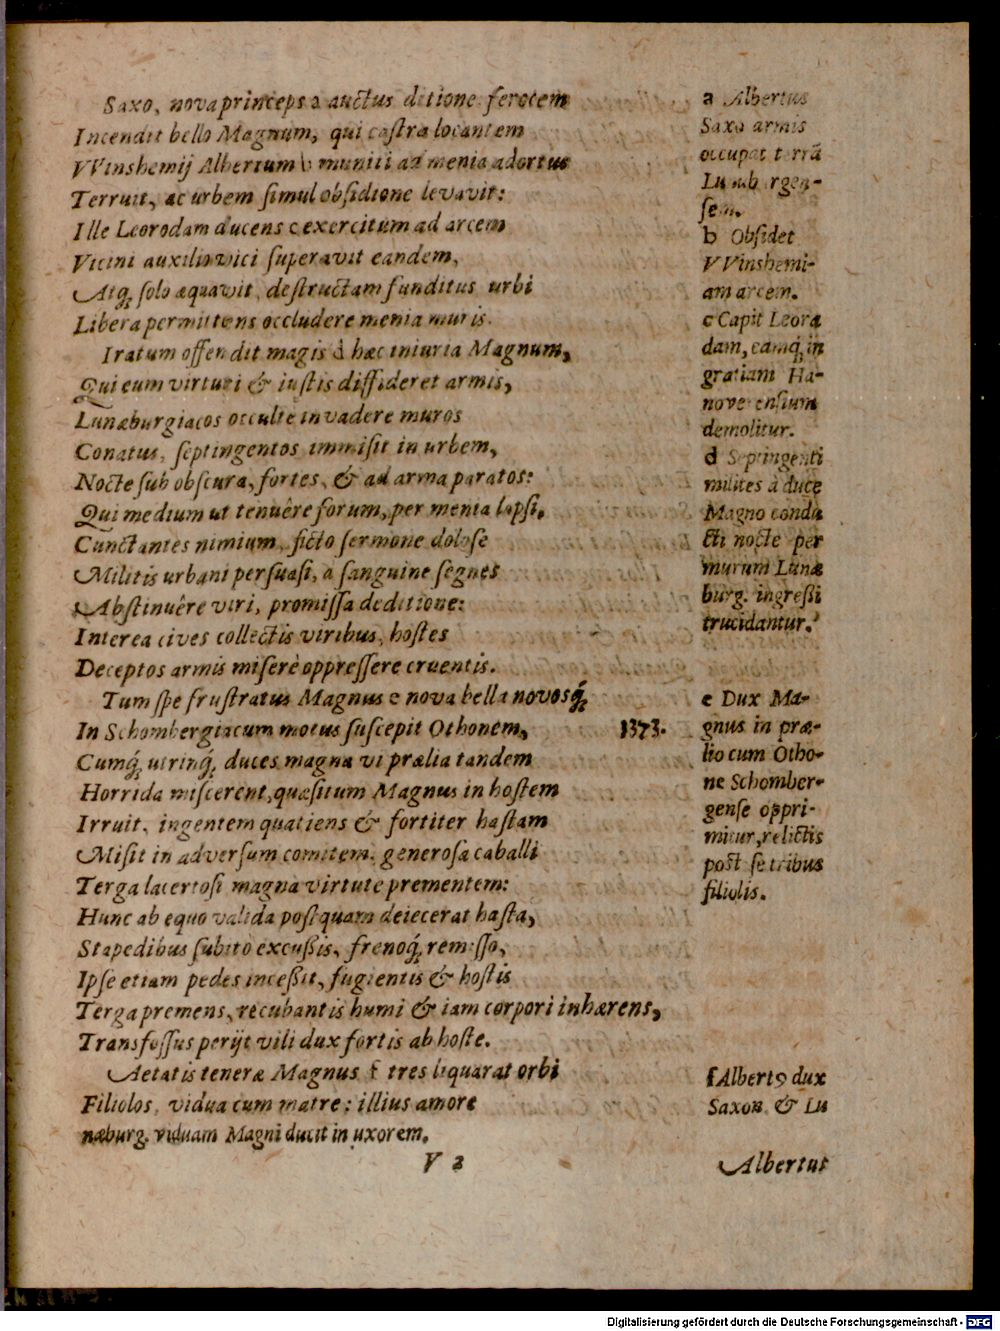 Saxo, nova princeps a auctus ditione ferocem
Incendit bello Magnum, qui castra locantem
VVinshemij Albertum b muniti ad menia adortus
Terruit, ac urbem simul obsidione levavit:
Ille Leorodam ducens c exercitum ad arcem
Vicini auxilio vici superavit eandem,
Atq́; solo æquavit, destructam funditus urbi
Libera permittens occludere menia muris.
Iratum offendit magis à hæc iniuria Magnum,
Qui cum virtuti & iustis diffideret armis,
Lunæburgiacos occultè invadere muros
Conatus, septingentos immisit in urbem,
Nocte sub obscura, fortes, & ad arma paratos:
Qui medium ut tenuêre forum, per menia lapsi,
Cunctantes nimium, ficto sermone dolose
Militis urbani persuasi, a sanguine segnes
Abstinuêre viri, promissa deditione:
Interea cives collectis viribus, hostes
Deceptos armis miserè oppressere cruentis.
Tum spe frustratus Magnus e nova bella novosq́;
In Schombergiacum motus suscepit Othonem,
Cumq́; utrinq́; duces magna vi prælia tandem
Horrida miscerent, quæsitum Magnus in hostem
Irruit, ingentem quatiens & fortiter hastam
Misit in adversum comitem, generosa caballi
Terga lacertosi magna virtute prementem:
Hunc ab equo valida postquam deiecerat hasta,
Stapedibus subitò excußis, frenoq́; remisso,
Ipse etiam pedes inceßit, fugientis & hostis
Terga premens, recubantis humi & iam corpori inhærens,
Transfossus perijt vili dux fortis ab hoste.
Aetatis teneræ Magnus f tres liquarat orbi
Filiolos, vidua cum matre: illius amore
næburg. viduam Magni ducit in uxorem.
V 2
a Albertus
Saxo armis
occupat terrã
Lunæburgen-
sem.
b Obsidet
VVinshemi-
am arcem.
c Capit Leoro
dam, eamq́; in
gratiam Ha-
noverensium
demolitur.
d Septingenti
milites à duce
Magno condu
cti nocte per
murum Lunæ
burg. ingreßi
trucidantur.
1373.
e Dux Ma-
gnus in præ-
lio cum Otho-
ne Schomber-
gense oppri-
mitur, relictis
post se tribus
filiolis.
f Albertꝰ dux
Saxon. & Lu
Albertus
Digitalisierung gefördert durch die Deutsche Forschungsgemeinschaft - DFG